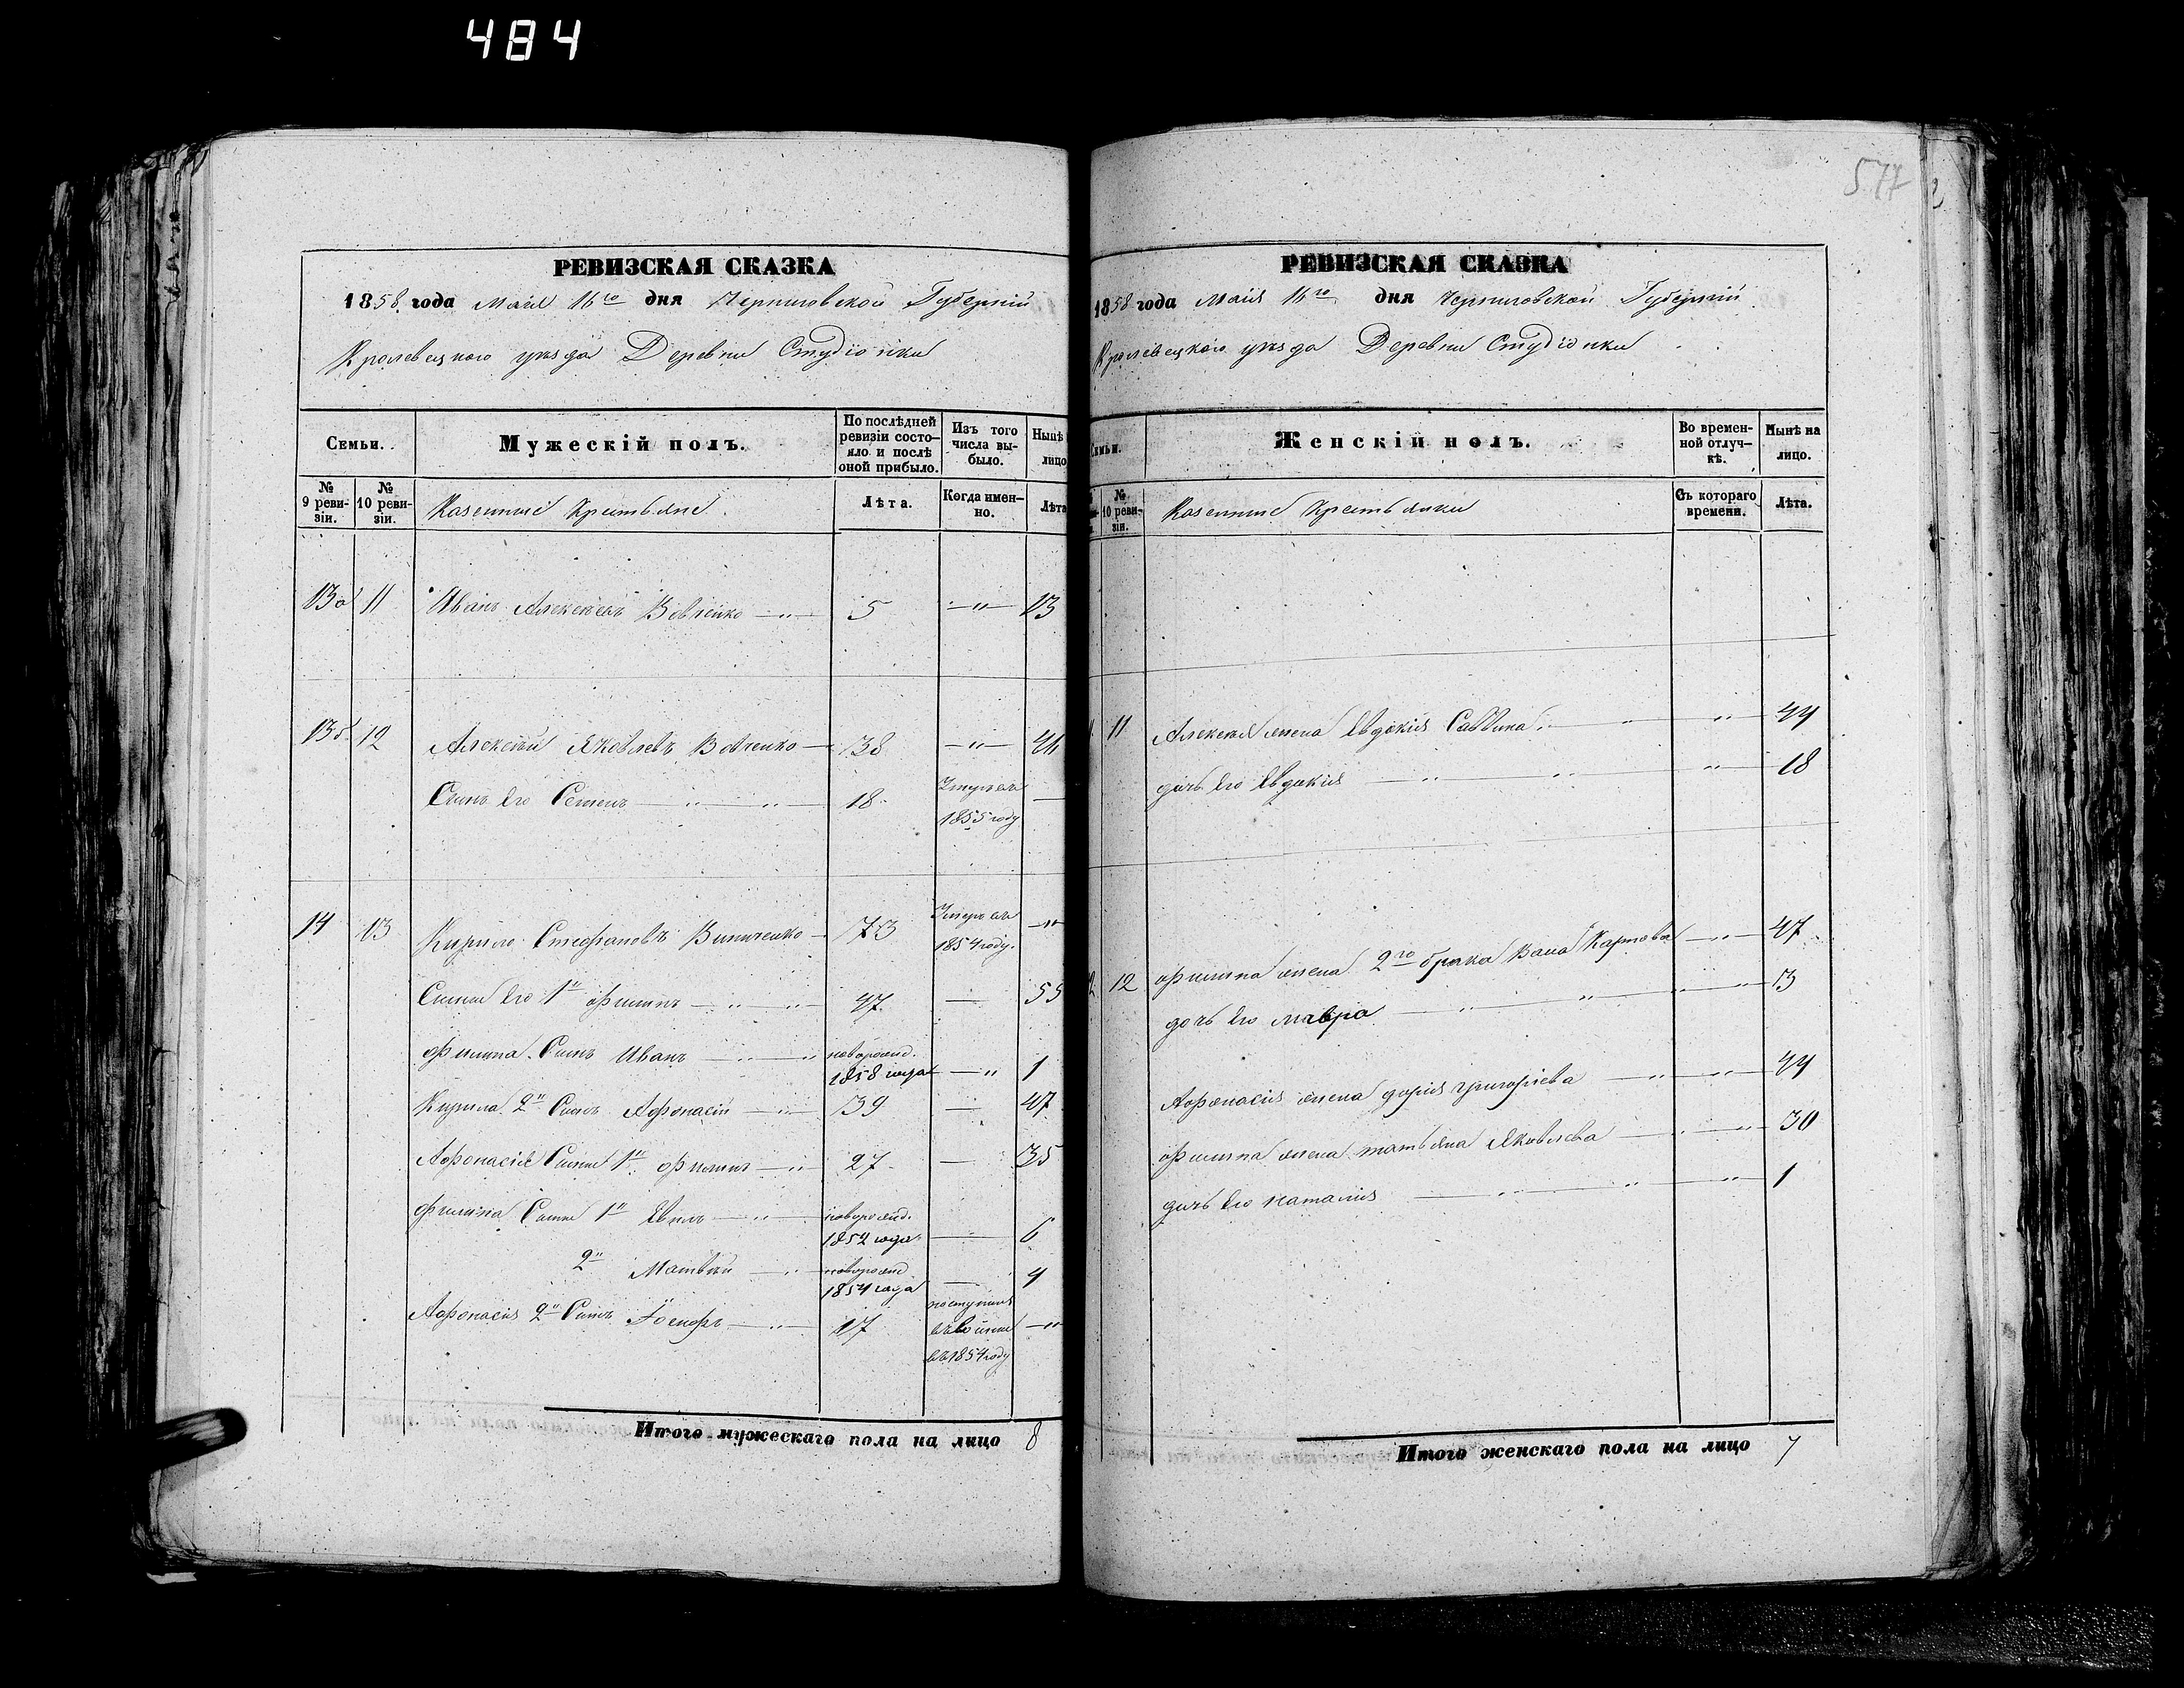 484
577
РЕВИЗСКАЯ СКАЗКА
1858 года Маія 16го дня Черниговской Губерніи
Кролевецкого уѣзда Деревни Студіонки
Семьи. Мужескій полъ. По послѣдней ревизіи состояло и послѣ оной прибыло. Изъ того числа выбыло. Нынѣ лицо
№ 9 ревизіи. № 10 ревизіи. Казенные Крестьяне Лѣта. Когда именно. Лѣта
13а 11 Иванъ Алексѣевъ Вовченко 5 — " — 13
13б 12 Алексѣй Яковлевъ Вовченко 38 — " — 46
Сынъ Его Семенъ 18 Умеръ въ 1855 году —
14 13 Кирило Стефановъ Виниченко 73 Умеръ въ 1854 году. — "
Сыны Его 1й Филипъ 47 — 55
Филипа Сынъ Иванъ новорожд. 1858 года — " 1
Кирила 2й Сынъ Афонасій 39 — 47
Афонасія Сыны 1й Филипъ 27 — 35
Филипа Сыны 1й новорожд. 1852 года — 6
2й Матвѣй новорожд 1854 года — 4
Афонасія 2й Сынъ Іосифъ 17 поступилъ въ 1854 году — "
Итого мужескаго пола на лицо 8
РЕВИЗСКАЯ СКАЗКА
1858 года Маія 16го дня Черниговской Губерніи
Кролевецкого уѣзда Деревни Студіонки
Семьи. Женскій полъ. Во временной отлучкѣ. Нынѣ на лицо.
№ 10 ревизіи. Казенные Крестьянки Съ котораго времени. Лѣта.
11 Алексѣя жена Евдокія Саввина " 44
дочь Его Евдокія " 18
12 Филипа жена 2го брака Карпова " 47
дочь Его Мавра " 13
Афонасія жена Дарія Григоріева " 44
Филипа жена Татьяна Яковлева " 30
дочь Его Наталія " 1
Итого женскаго пола на лицо 7